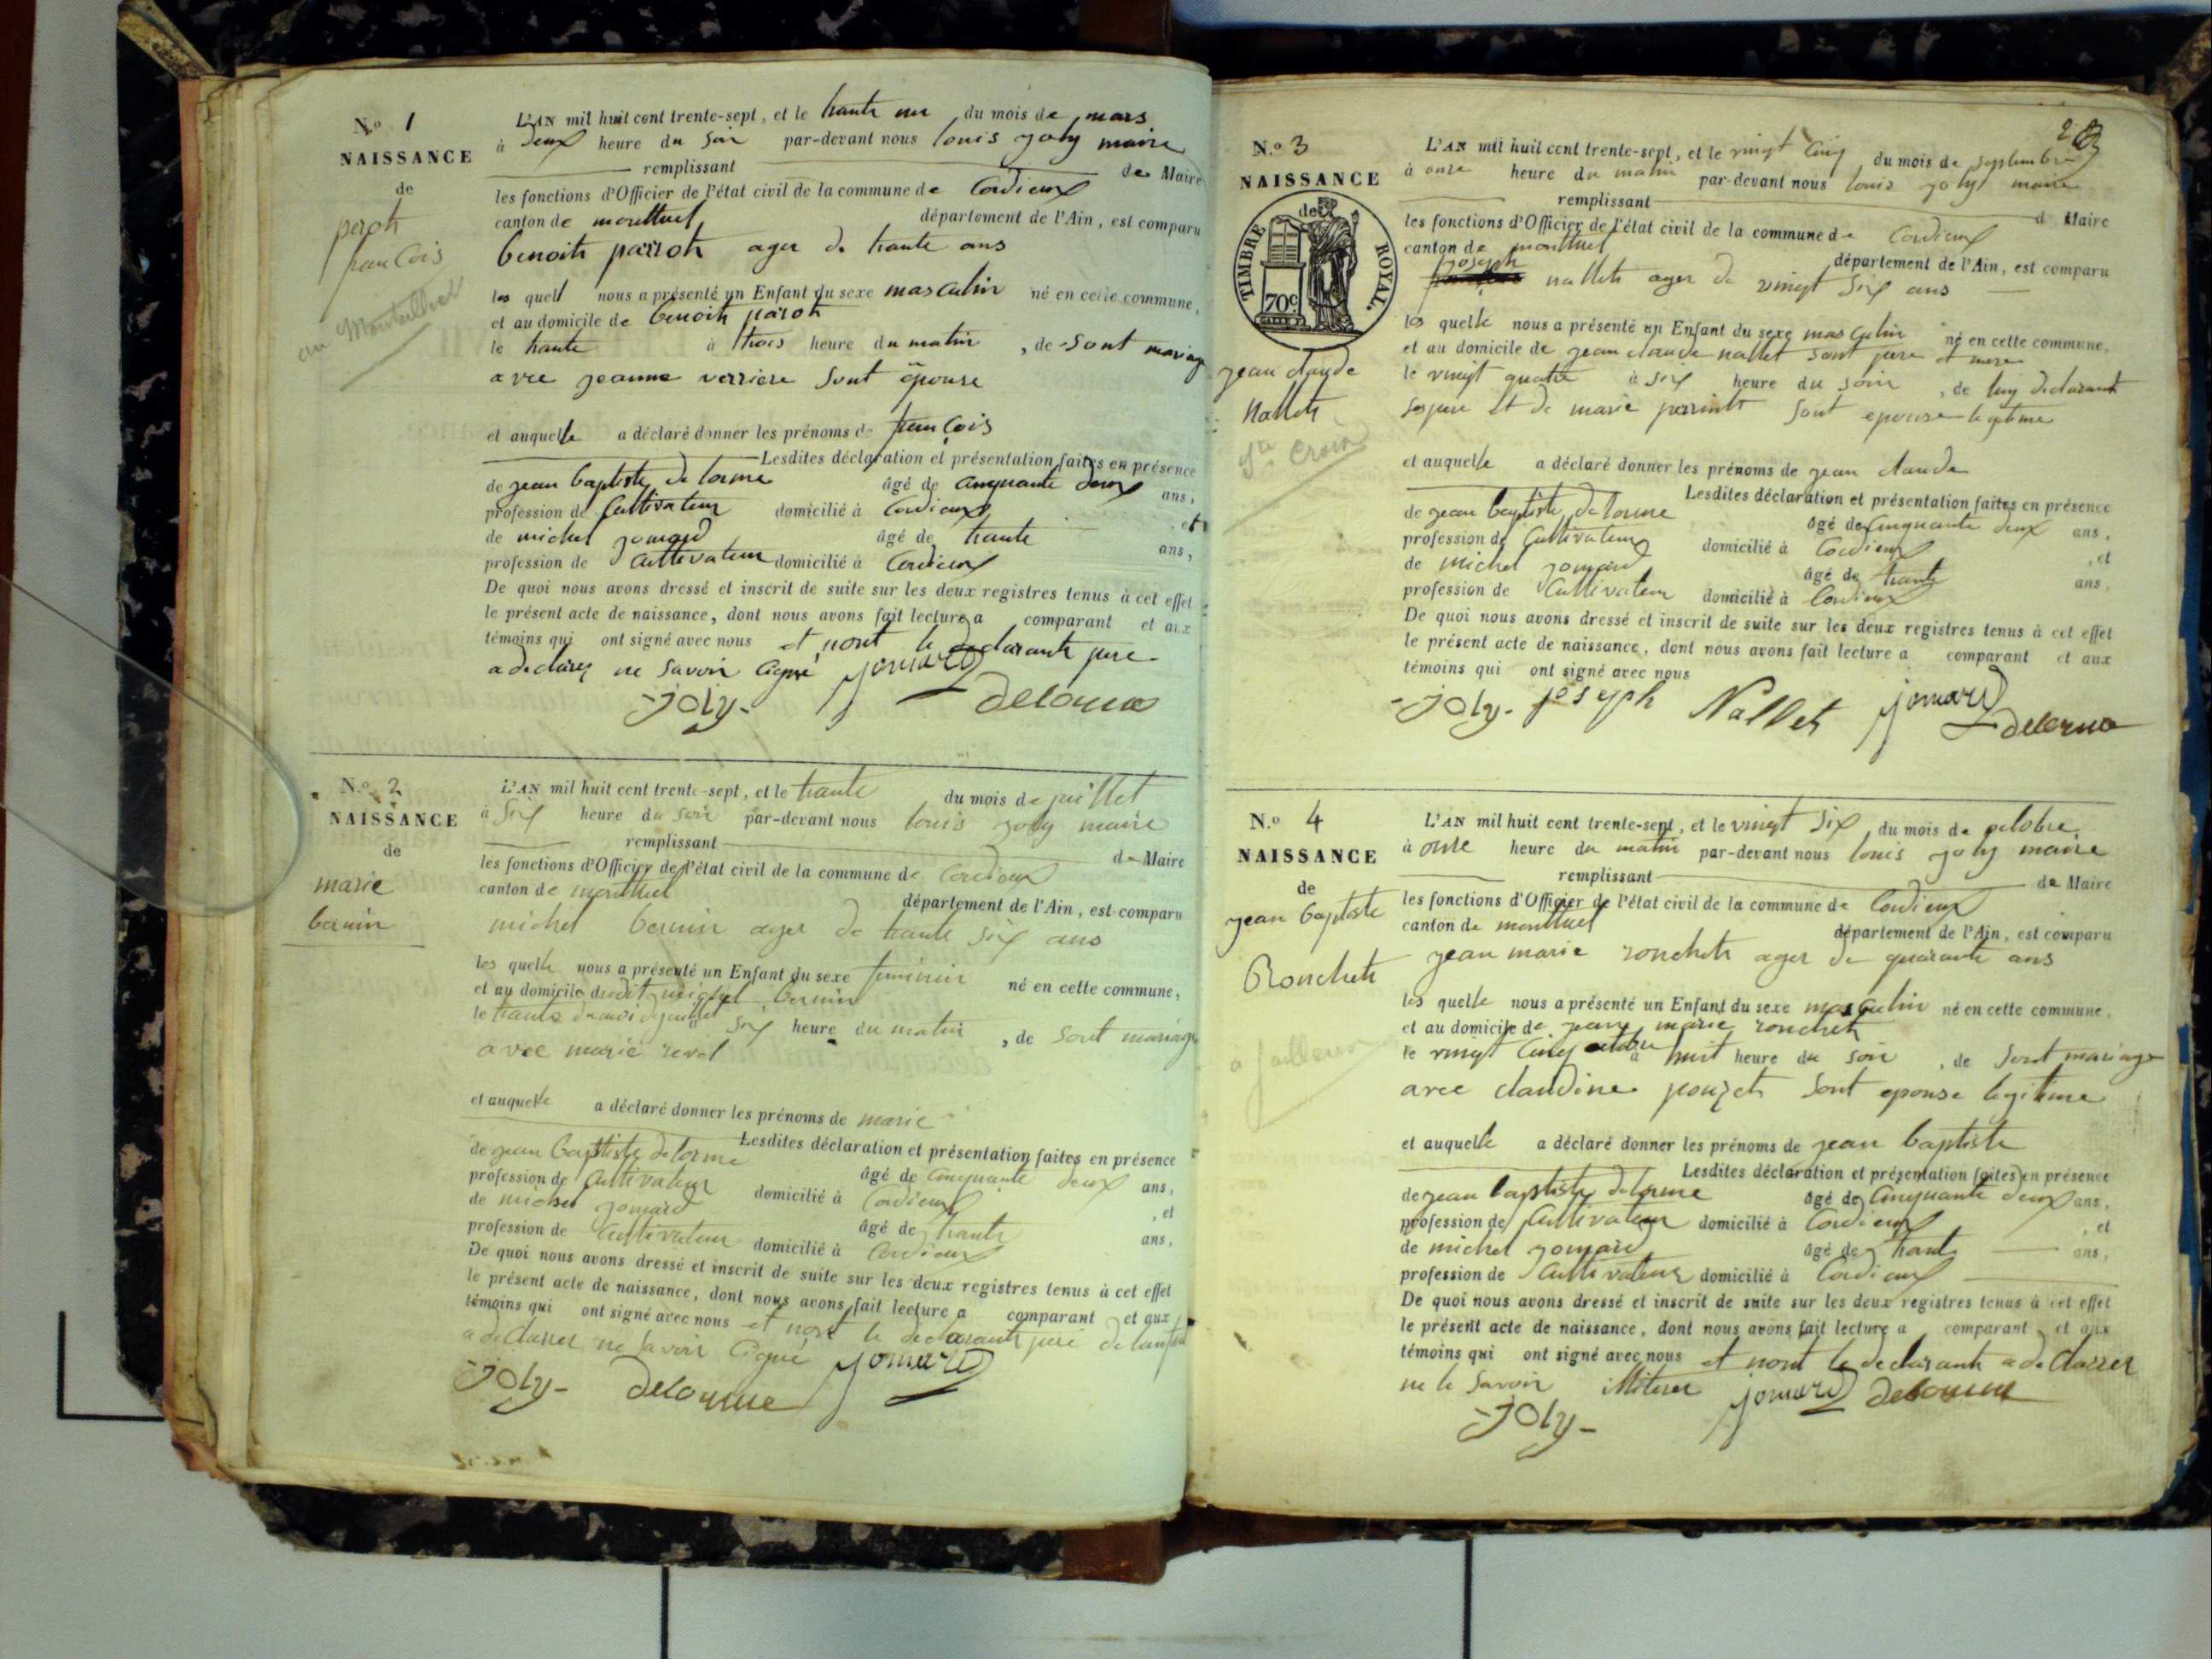 N.o 1
NAISSANCE
de
peroh
franCois
au Montellier
L'AN mil huit cent trente-sept, et le trante un du mois de mars
à deux heure du soir par-devant nous louis joly maire
remplissant de Maire
les fonctions d'Officier de l'état civil de la commune de Cordieux
canton de montluel département de l'Ain, est comparu
benoith parroh ager de trante ans
les quell nous a présenté un Enfant du sexe masculin né en cette commune,
et au domicile de benoith paroh
le trante à trois heure du matin, de sont mariage
avec jeanne verriere sont épouse
et auquelle a déclaré donner les prénoms de franCois
Lesdites déclaration et présentation faites en présence
de jean baptiste delorme âgé de cinquante deux ans,
profession de Cultivateur domicilié à Cordieux, et
de michel jomard âgé de trante ans,
profession de Cultivateur domicilié à Cordieux
De quoi nous avons dressé et inscrit de suite sur les deux registres tenus à cet effet
le présent acte de naissance, dont nous avons fait lecture a comparant et aux
témoins qui ont signé avec nous et nont le declarante pere
a declarez ne savoir signé jomard
-joly- delorme
N.o 2
NAISSANCE
de
marie
bernin
L'AN mil huit cent trente-sept, et le trante du mois de juillet
à six heure du soir par-devant nous louis joly maire
remplissant de Maire
les fonctions d'Officier de l'état civil de la commune de Cordieux
canton de montluel département de l'Ain, est comparu
michel bernin ager de trante six ans
les quelle nous a présenté un Enfant du sexe feminin né en cette commune,
et au domicile dudit michel bernin
le trante du moi de juillet à six heure du matin, de sont mariage
avec marie revel
et auquelle a déclaré donner les prénoms de marie
Lesdites déclaration et présentation faites en présence
de jean baptiste delorme âgé de cinquante deux ans,
profession de Cultivateur domicilié à Cordieux, et
de michel jomard âgé de trante ans,
profession de Cultivateur domicilié à Cordieux
De quoi nous avons dressé et inscrit de suite sur les deux registres tenus à cet effet
le présent acte de naissance, dont nous avons fait lecture a comparant et aux
témoins qui ont signé avec nous et nont le declarante peré
a declarer ne savoir signé jomard
-joly- delorme
N.o 3
NAISSANCE
de
TIMBRE ROYAL.
70c
jean claude
Nalleth
Ste Croix
L'AN mil huit cent trente-sept, et le vingt Cinq du mois de septembre
à onze heure du matin par-devant nous louis joly maire
remplissant d Maire
les fonctions d'Officier de l'état civil de la commune de Cordieux
canton de montluel département de l'Ain, est comparu
joseph nalleth ager de vingt six ans
les quelle nous a présenté un Enfant du sexe masculin né en cette commune,
et au domicile de jean claude nallet sont pere et mere
le vingt quatre à six heure du soir, de luy declarant
pere et de marie perrinth sont epouse legitime
et auquelle a déclaré donner les prénoms de jean claude
Lesdites déclaration et présentation faites en présence
de jean baptiste delorme âgé de cinquante deux ans,
profession de Cultivateur domicilié à Cordieux, et
de michel jomard âgé de trante ans,
profession de Cultivateur domicilié à Cordieux
De quoi nous avons dressé et inscrit de suite sur les deux registres tenus à cet effet
le présent acte de naissance, dont nous avons fait lecture a comparant et aux
témoins qui ont signé avec nous
-joly- joseph Nallet jomard
delorme
N.o 4
NAISSANCE
de
jean baptiste
Roncheth
L'AN mil huit cent trente-sept, et le vingt six du mois de octobre
à onze heure du matin par-devant nous louis joly maire
remplissant de Maire
les fonctions d'Officier de l'état civil de la commune de Cordieux
canton de montluel département de l'Ain, est comparu
jean marie roncheth ager de quarante ans
les quelle nous a présenté un Enfant du sexe masculin né en cette commune,
et au domicile de jean marie roncheth
le vingt cinq octobre à huit heure du soir, de sont mariage
avec claudine pouzet sont epouse legitime
et auquelle a déclaré donner les prénoms de jean baptiste
Lesdites déclaration et présentation faites en présence
de jean baptiste delorme âgé de cinquante deux ans,
profession de Cultivateur domicilié à Cordieux, et
de michel jomard âgé de trante ans,
profession de Cultivateur domicilié à Cordieux
De quoi nous avons dressé et inscrit de suite sur les deux registres tenus à cet effet
le présent acte de naissance, dont nous avons fait lecture a comparant et aux
témoins qui ont signé avec nous et nont le declarante a declarrer
ne le savoir illiterer jomard delorme
-joly-